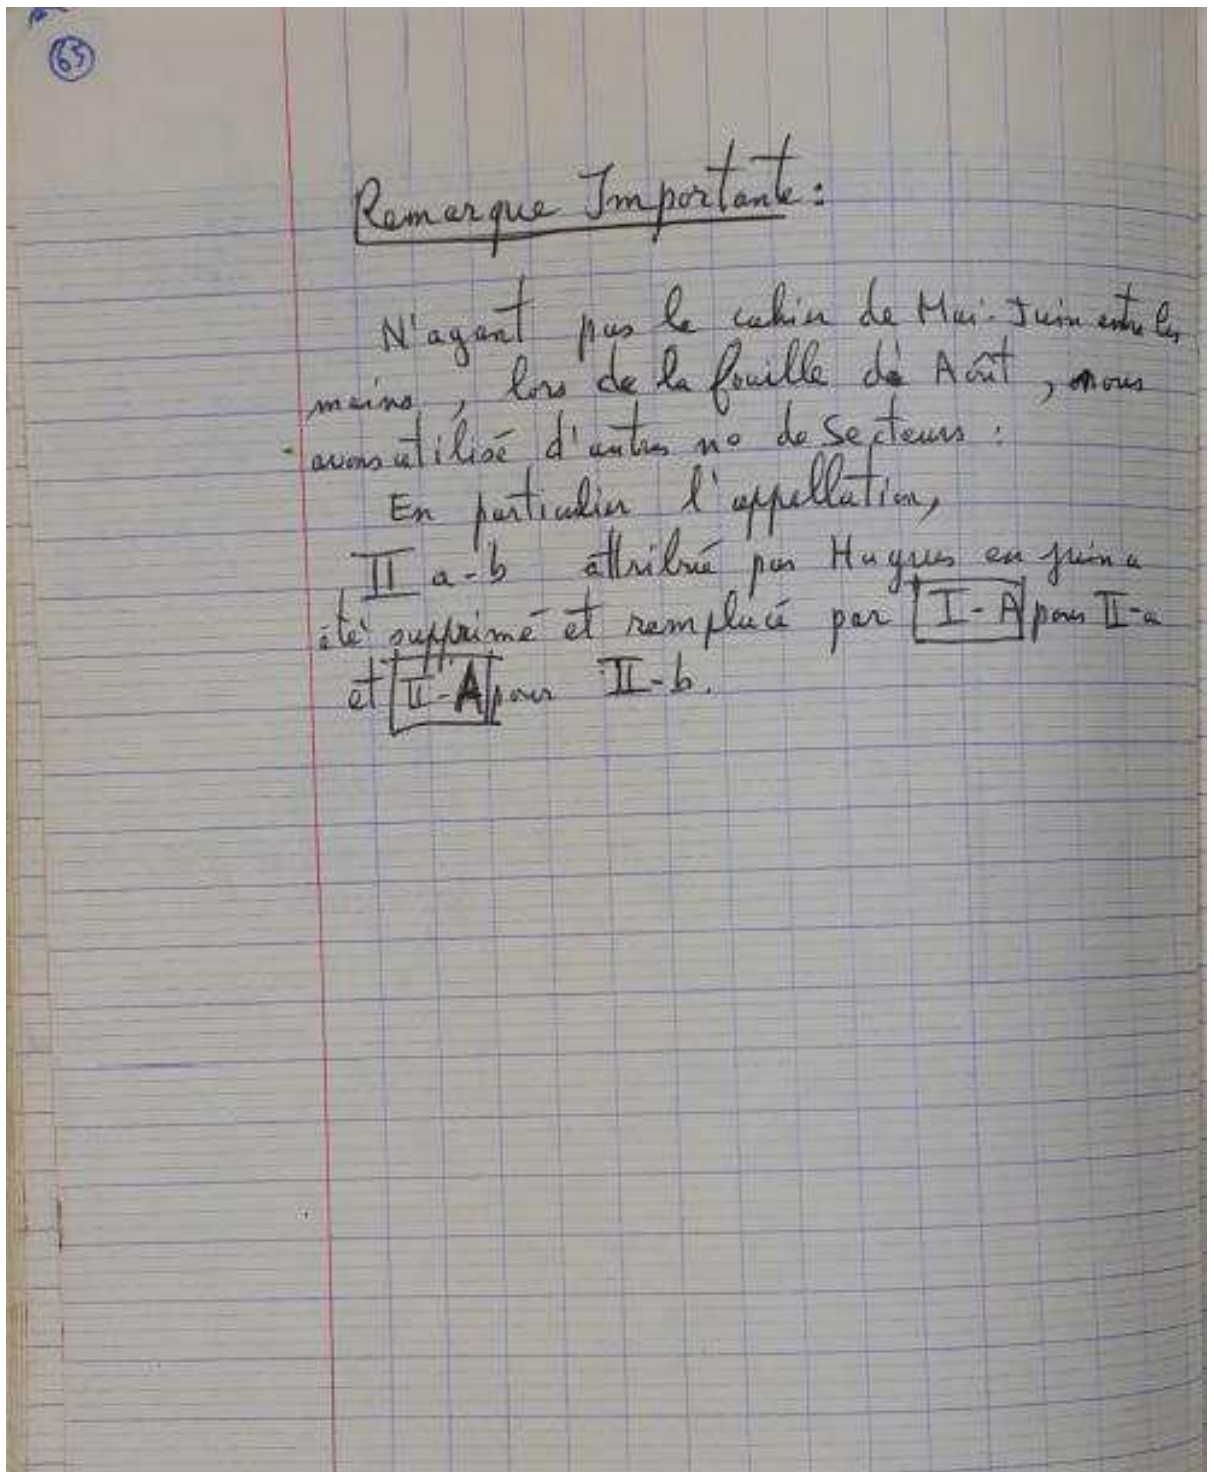 65
Remarque Importante :
N'ayant pas le cahier de Mai-Juin entre les
mains, lors de la fouille de Août, nous
avons utilisé d'autres no de Secteurs :
En particulier l'appellation,
II a-b attribué par Hugues en juin a
été supprimé et remplacé par I-A pour II-a
et II-A pour II-b.